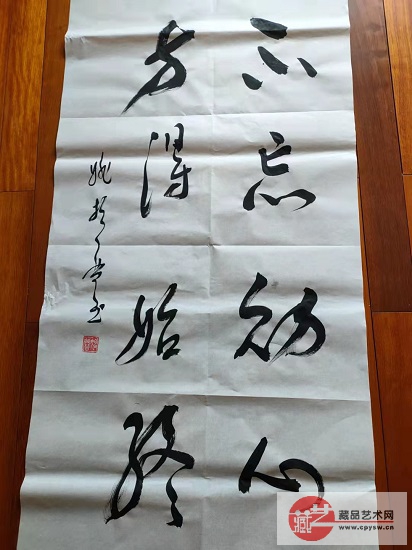 不忘初心
方得始终
藏艺
藏品艺术网
www.cpysw.cn